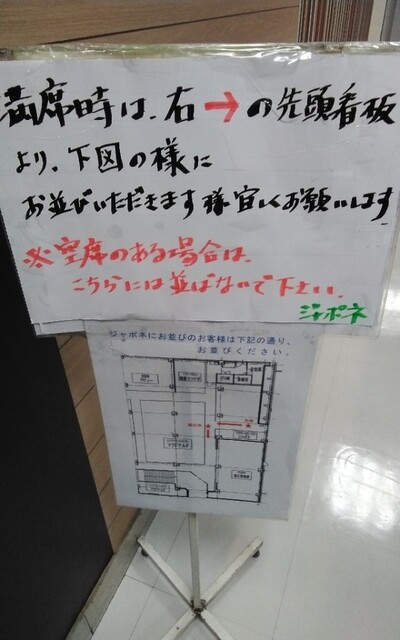 満席時は、右→の先頭看板
より、下図の様に
お並びいただきます様宜しくお願いします
※空席のある場合は、
こちらには並ばないで下さい。
ジャポネ
ジャポネにお並びのお客様は下記の通り、
お並びください。